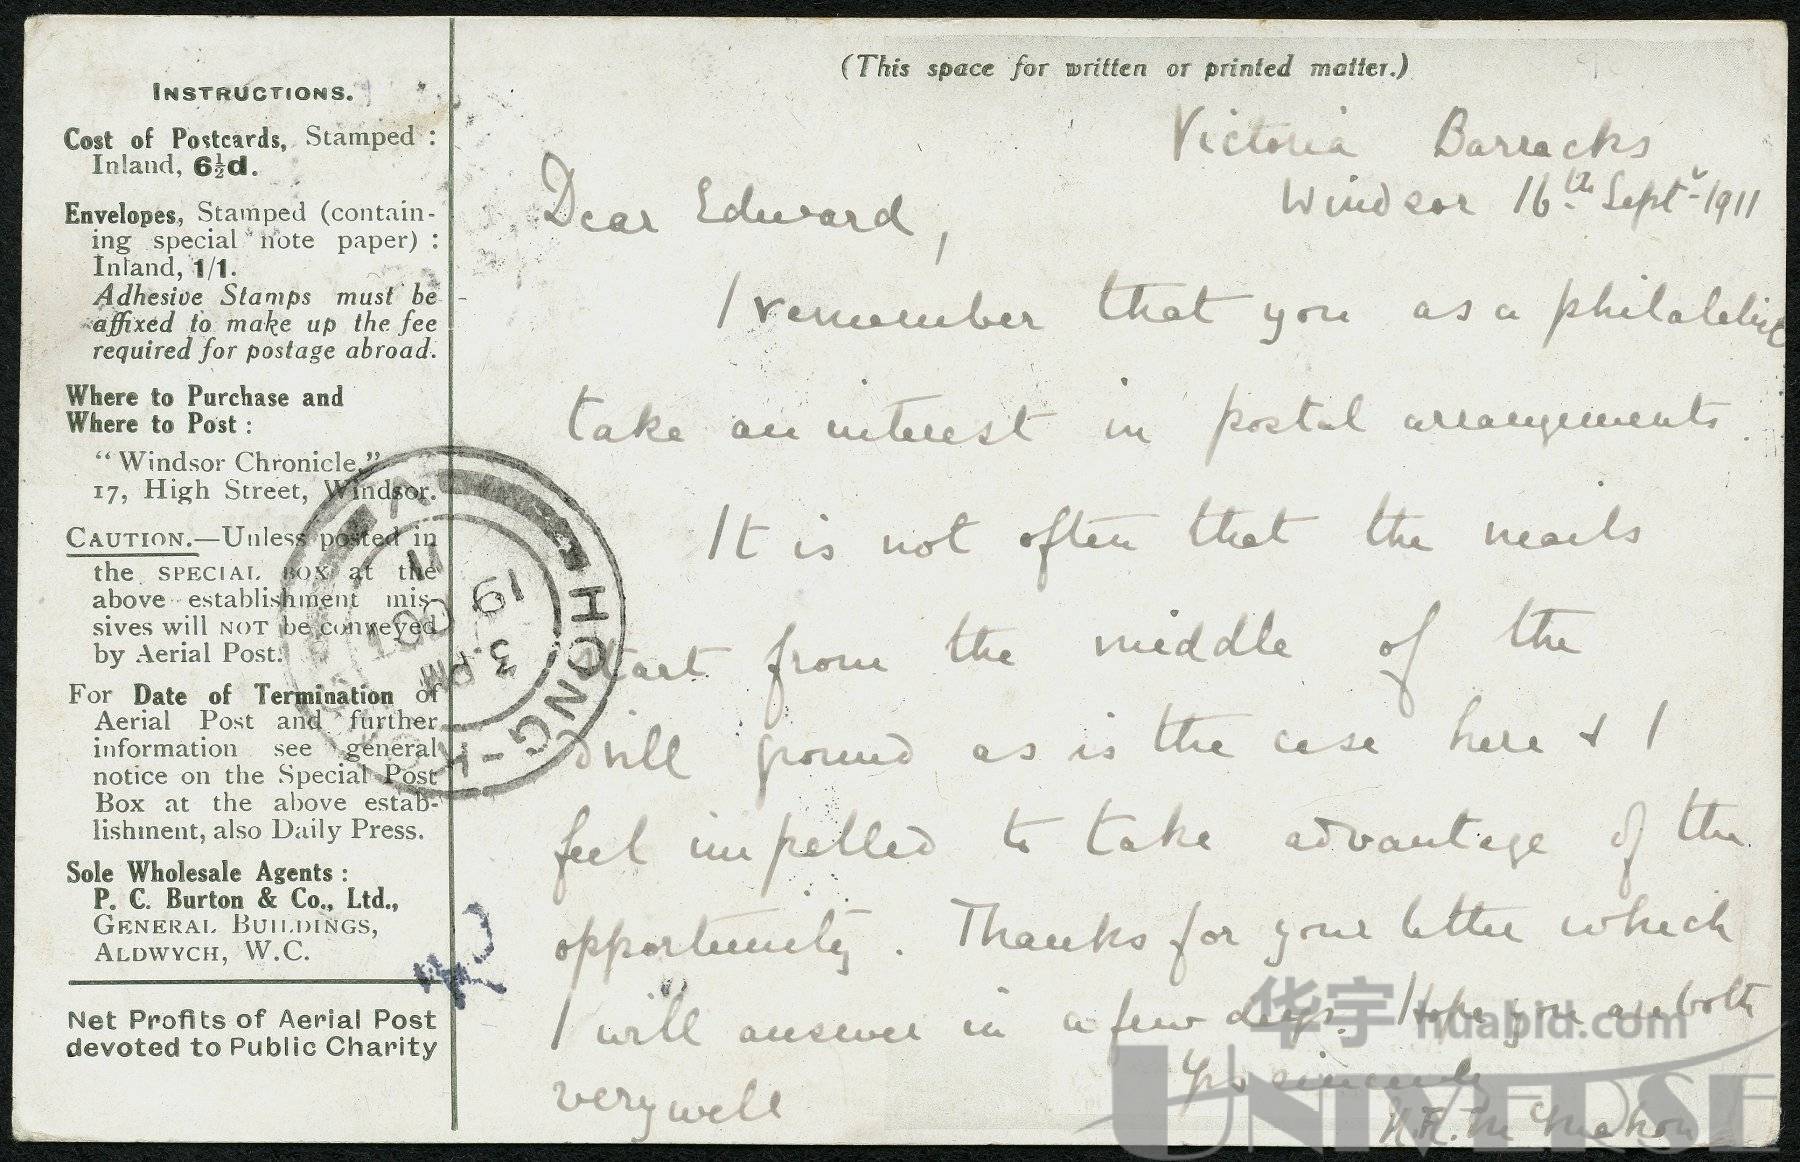 INSTRUCTIONS.
Cost of Postcards, Stamped :
Inland, 6½d.
Envelopes, Stamped (contain-
ing special note paper) :
Inland, 1/1.
Adhesive Stamps must be
affixed to make up the fee
required for postage abroad.
Where to Purchase and
Where to Post :
“Windsor Chronicle,”
17, High Street, Windsor.
CAUTION.—Unless posted in
the SPECIAL BOX at the
above establishment mis-
sives will NOT be conveyed
by Aerial Post.
For Date of Termination of
Aerial Post and further
information see general
notice on the Special Post
Box at the above estab-
lishment, also Daily Press.
Sole Wholesale Agents :
P. C. Burton & Co., Ltd.,
GENERAL BUILDINGS,
ALDWYCH, W.C.
Net Profits of Aerial Post
devoted to Public Charity
(This space for written or printed matter.)
Victoria Barracks
Windsor 16th Septr 1911
Dear Edward,
I remember that you as a
take an interest in postal arrangements.
It is not often that the mails
start from the middle of the
drill ground as is the case here & I
feel impelled to take advantage of the
opportunity. Thanks for your letter which
I will answer in a few days. Hope you are both
very well
Yrs sincerely
McMahon
A
HONG-KONG
3.PM
19 OC
11
华宇 huabid.com
UNIVERSE